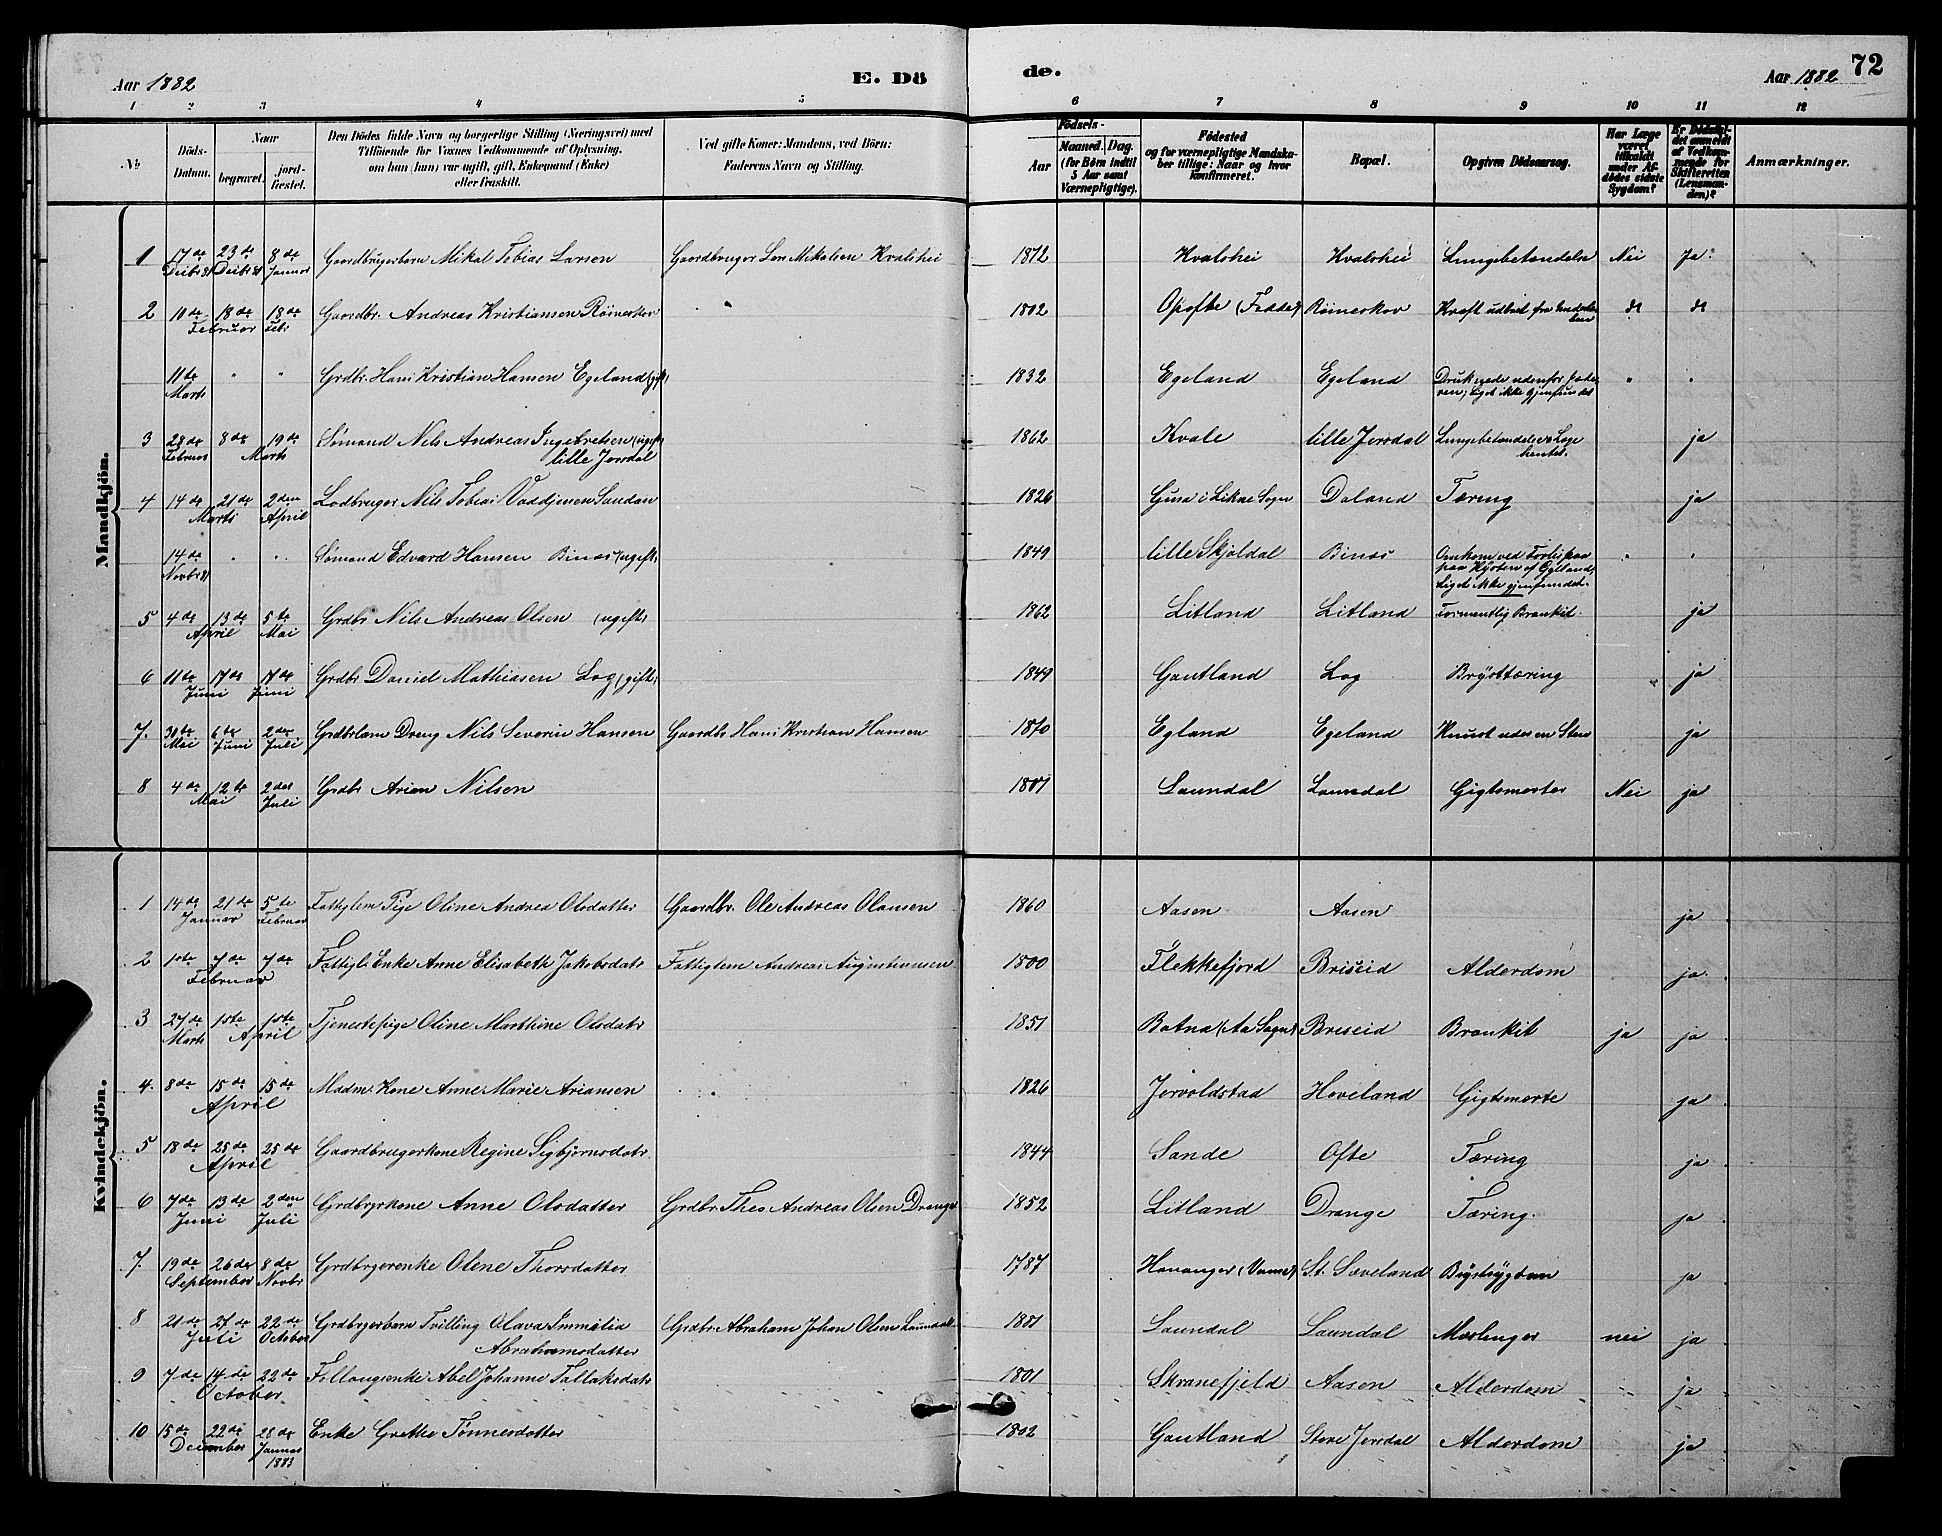 Aar 1882 E. Dö de. Aar 1882 72
1 2 3 4 5 6 7 8 9 10 11 12
№ Döds-Datum. Naar begravet. jordfæstet. Den Dödes fulde Navn og borgerlige Stilling (Næringsvei) med Tilföiende for Voxnes Vedkommende af Oplysning, om han (hun) var ugift, gift, Enkemand (Enke) eller fraskilt. Ved gifte Koner: Mandens, ved Börn: Faderens Navn og Stilling. Födsels- Aar Maaned. Dag. (for Börn indtil 5 Aar samt Værnepligtige). Födested og for værnepligtige Mandskaber tillige: Naar og hvor konfirmeret. Bopæl. Opgiven Dödsaarsag. Har Læge været tilkaldt under Afdödes sidste Sygdom? Er Dödsfaldet anmeldt af Vedkommende for Skifteretten (Lensmanden)? Anmærkninger.
Mandkjön.
1 17de Decbr 81 23de Decbr 81 8de Januar Gaardbrugerbarn Mikal Tobias Larsen Gaardbruger Lars Mikalsen Kvalshei 1872 Kvalshei Kvalshei Lungebetændelse Nei Ja
2 10de 18de Februar 18de Febr Gaardbr. Andreas Kristiansen Röineskov 1802 Opofte (Fedde) Röineskov Kraft udbrut fra do do
11te Marts " " Grdbr. Hans Kristian Hansen Egeland (gift) 1832 Egeland Egeland Druknede udenfor ; Liget ikke gjenfundet " "
3 28de Februar 8de 19de Marts Sömand Nils Andreas Ingebretsen (ugift) lille Jersdal 1862 Kvale lille Jersdal Lungebetændelse Læge hentet. ja
4 14de 21de Marts 2den April Nils Tobias Sandan 1826 i Likne Sogn Daland Tæring ja
14de Novbr 81 " " Sömand Edvard Hansen Binæs (ugift) 1849 lille Skjoldal Binæs Omkom ved Forlis paa Kysten af Gylland, Liget ikke gjenfundet. " "
5 4de 13de April 5te Mai Grdbr Nils Andreas Olsen (ugift) 1862 Litland Litland Formentlig Bronkit. ja
6 11te Juni 17de 17de Juni Grdbr Daniel Mathiasen Log (gift) 1849 Gautland Log Brysttæring ja
7. 31te Mai 6te Juni 2den Juli Dreng Nils Severin Hansen Gaardbr Hans Kristian Hansen 1870 Egland Egeland Knust under en Sten ja
8 4de 12te Mai 2den Juli Grdbr Arian Nilsen 1801 Laundal Laundal Gigtsmerter Nei ja
Kvindekjön.
1 14de 21de Januar 5te Februar Fattiglem Pige Oline Andrea Olsdatter Gaardbr. Ole Andreas Olausen 1860 Aasen Aasen ja
2 1ste 7de Februar 7de Fattigl. Enke Anne Elisabeth Jakobsdatr Fattiglem Andreas Augustinussen 1800 Flekkefjord Briseid Alderdom ja
3 27de Marts 1ste 1ste April Tjenestepige Oline Marthine Olsdatr 1851 Botna (Aa Sogn) Briseid Bronkit ja ja
4. 8de 15de April 15de Madm. Kone Anne Marie Ariansen 1826 Jervoldstad Hoveland Gigtsmerte ja
5 18de 25de April 25de Gaardbrugerkone Regine Sigbjörnsdatr. 1844 Sande Ofte Tæring ja
6 7de Juni 13de 2den Juli Grdbrgrkone Anne Olsdatter Grdbr Theo Andreas Olsen Drange 1852 Litland Drange Tæring. ja
7. 19de 26de September 8de Novbr Grdbrgerenke Olene Thorsdatter 1787 Hananger (Vanse) St. Sæveland Brystsygdom ja
8 21de 27de Juli 22de October Grdbrgerbarn Tvilling Olava Immalia Abrahamsdatter Grdbr. Abraham Johan Olsen Laundal 1881 Laundal Laundal Meslinger nei ja
9 7de 14de October 22de Abel Johanne Tallaksdatr 1801 Skranefjeld Aasen Alderdom ja
10 15de 22de December 28de Januar 1883 Enke Grethe Tönnesdatter 1802 Gautland Store Jersdal Alderdom ja